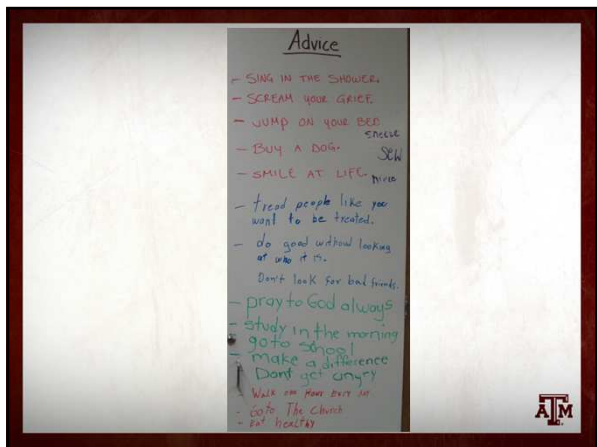 Advice
- SING IN THE SHOWER.
- SCREAM YOUR GRIEF.
- JUMP ON YOUR BED.
- BUY A DOG.
SEW
- SMILE AT LIFE
- tread people like you
want to be treated.
- do good without looking
at who it is.
Don't look for bad friends.
- pray to God always
- study in the morning
go to school
- make a difference
Dont get angry
Walk one Hour every
- Go to The Church
- Eat healthy
ATM